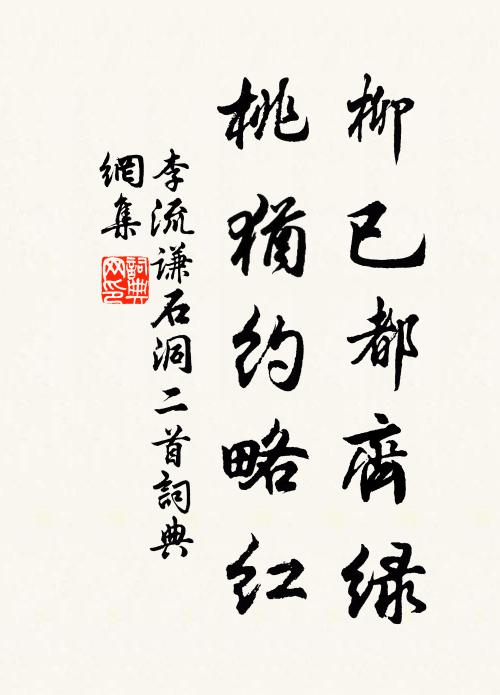 柳已都齊緑
桃猶約略紅
李流谦石洞二首詞典
網集
詞典網印